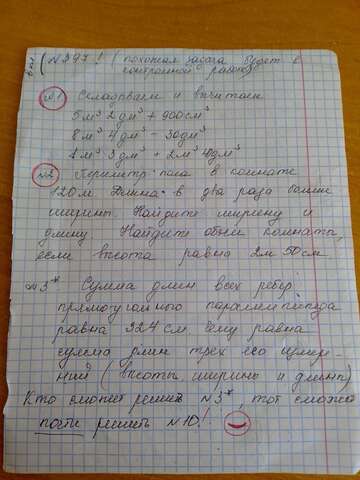 вн! (№397! (похожая задача будет в
контрольной работе)
№1 Складываем и вычитаем
5м³ 2дм³ + 900см³
8м³ 4дм³ - 30дм³
1м³ 3дм³ + 2м³ 4дм³
№2 Периметр пола в комнате
120м. Длина в два раза больше
ширины. Найдите ширину и
длину. Найдите объем комнаты,
если высота равна 2м 50см.
№3* Сумма длин всех ребер
прямоугольного параллелепипеда
равна 324 см. Чему равна
сумма длин трех его измере-
ний (высоты, ширины и длины)
Кто сможет решить №3*, тот сможет
почти решить №10!